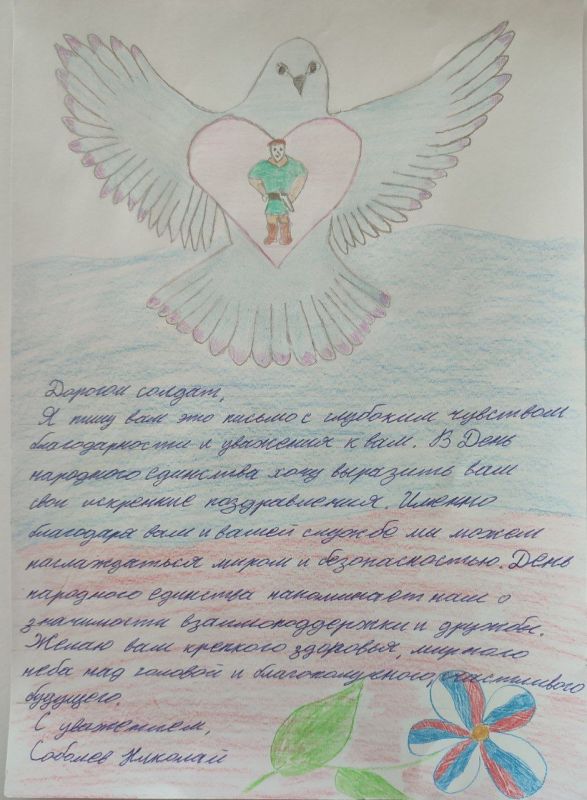 Дорогой солдат,
Я пишу вам это письмо с глубоким чувством
благодарности и уважения к вам. В День
народного единства хочу выразить вам
свои искренние поздравления. Именно
благодаря вам и вашей службе мы можем
наслаждаться миром и безопасностью. День
народного единства напоминает нам о
значимости взаимоподдержки и дружбы.
Желаю вам крепкого здоровья, мирного
неба над головой и благополучного, счастливого
будущего.
С уважением,
Соболев Николай